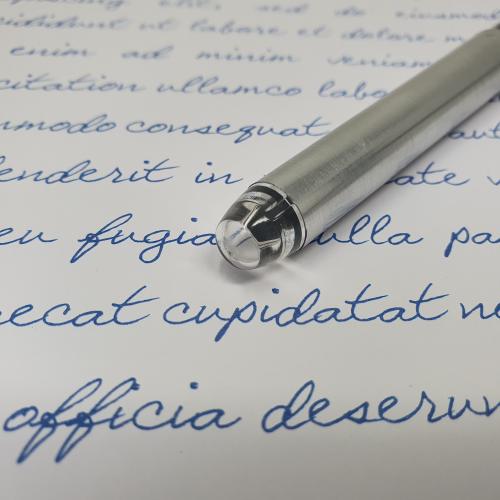 elit, sed do eiusmod
ut labore et dolore m
enim ad minim veniam
citation ullamco labo
mmodo consequat aut
enderit in ate v
eu fugia ulla pa
ecat cupidatat n
officia deserun